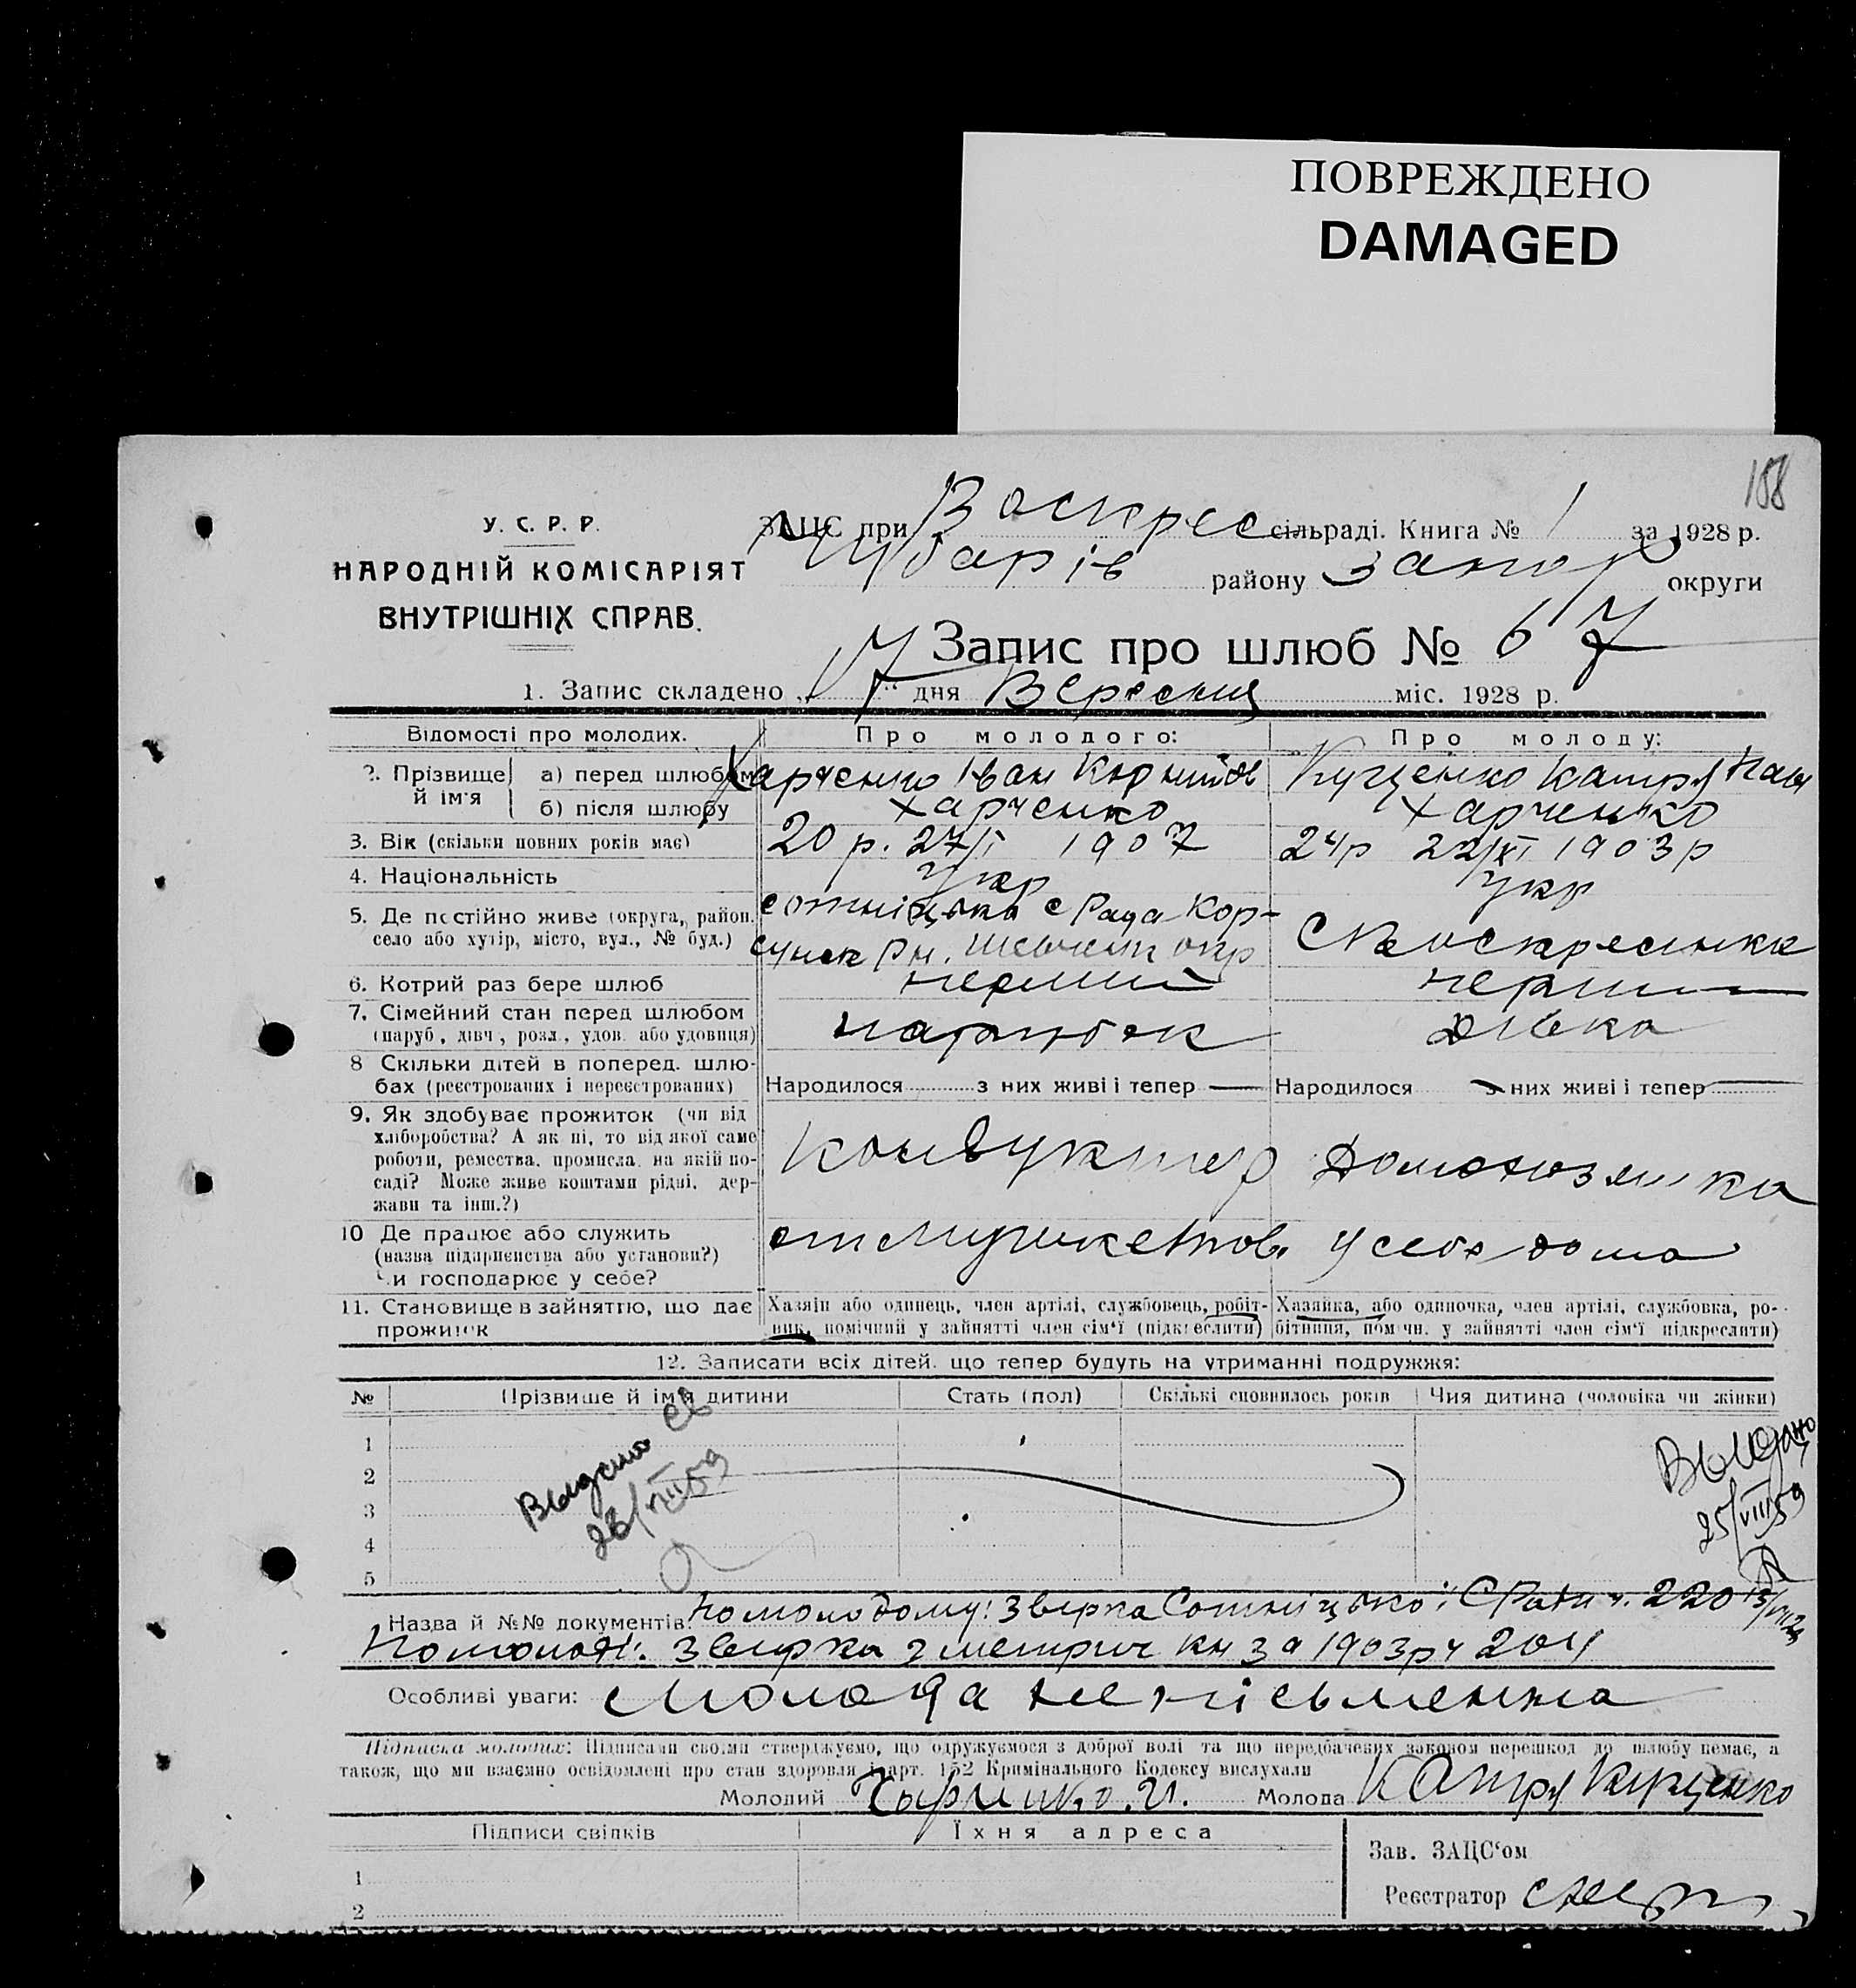 ПОВРЕЖДЕНО
DAMAGED
188
У. С. Р. Р.
НАРОДНІЙ КОМІСАРІЯТ
ВНУТРІШНІХ СПРАВ.
ЗАЦС при Воскрес сільраді. Книга № 1 за 1928 р.
Чубарів району Запор округи
Запис про шлюб № 67
1. Запис складено „17“ дня Вересня міс. 1928 р.
Відомості про молодих. Про молодого: Про молоду:
2. Прізвище й ім'я
а) перед шлюбом Харченко Іван Корнійов Куценко Катря Пав
б) після шлюбу Харченко Харченко
3. Вік (скільки повних років має) 20 р. 27/I 1907 24р 22/XI 1903р
4. Національність укр укр
5. Де постійно живе (округа, район, село або хутір, місто, вул., № буд.)
сотніцька с Рада Кор-
сунск Рн. Шевченк окр
С Воскресенка
6. Котрий раз бере шлюб перший перший
7. Сімейний стан перед шлюбом
(паруб., дівч., розл., удов. або удовиця) парубок дівка
8 Скільки дітей в поперед. шлю-
бах (реєстрованих і нереєстрованих) Народилося з них живі і тепер Народилося з них живі і тепер
9. Як здобуває прожиток (чи від
хліборобства? А як ні, то від якої саме
роботи, ремества, промисла, на якій по-
саді? Може живе коштами рідні, дер-
жави та інш.?)
Кондуктор Домохозяйка
10 Де працює або служить
(назва підприємства або установи?)
Чи господарює у себе?
у себе дома
11. Становище в зайняттю, що дає
прожиток
Хазяїн або одинець, член артілі, службовець, робіт-
ник, помічний у зайнятті член сім'ї (підкреслити)
Хазяйка, або одиночка, член артілі, службовка, ро-
бітниця, помічн. у зайнятті член сім'ї підкреслити)
12. Записати всіх дітей, що тепер будуть на утриманні подружжя:
№ Прізвище й ім'я дитини Стать (пол) Скількі сповнилось років Чия дитина (чоловіка чи жінки)
1
2
3
4
5
Выдано св
28/VIII 59
Выдано
25/VIII 59
Назва й №№ документів: По молодому: Звірка Сотніцької С Ради ч. 220
По молодій: Звірка з метрич кн за 1903р ч 204
Особливі уваги: Молода не письменна
Підписка молодих: Підписами своїми стверджуємо, що одружуємося з доброї волі та що передбачених законом перешкод до шлюбу немає, а
також, що ми взаємно освідомлені про стан здоровля і арт. 152 Кримінального Кодексу вислухали
Молодий Харченко. И. Молода Катря Куценко
Підписи свідків Їхня адреса
1
2
Зав. ЗАЦС'ом
Реєстратор